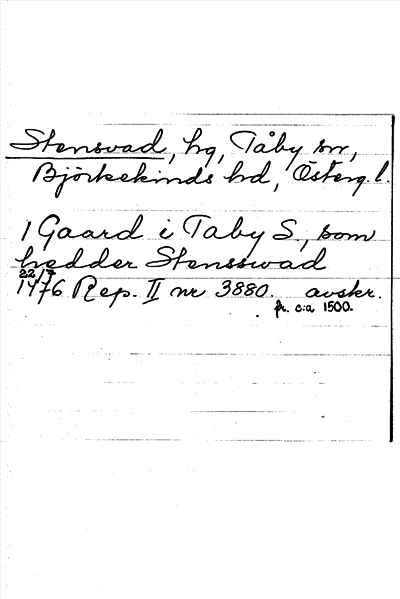 Stensvad, hg, Tåby sn,
Björkekinds hd, Österg. l.
1 Gaard i Taby S., som
hedder Stensswad
22/7
1476 Rep. II nr 3880. avskr.
fr. c:a 1500.